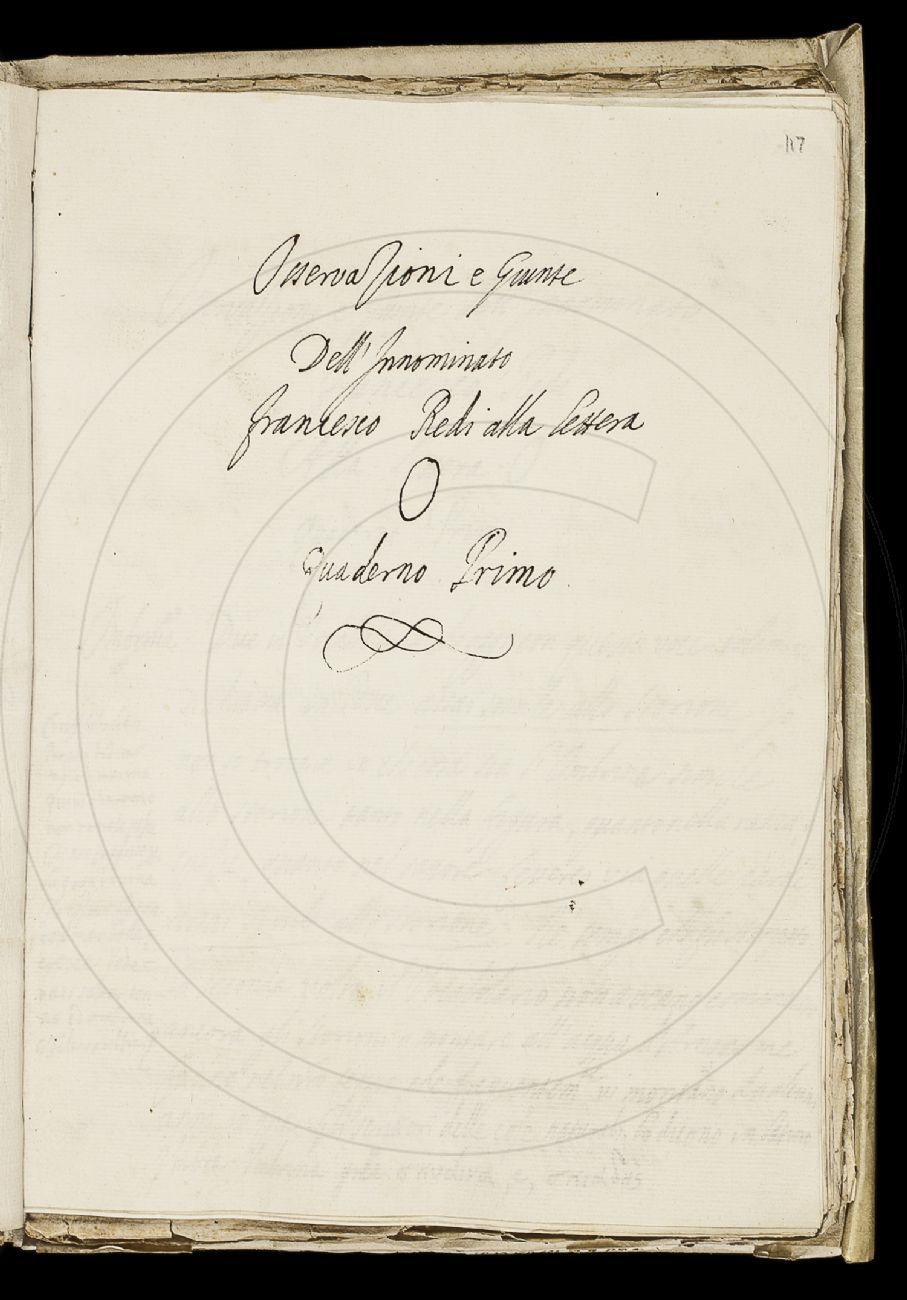 117
Osservazioni e Giunte
Dell'Innominato
Francesco Redi alla Lettera
O
Quaderno Primo